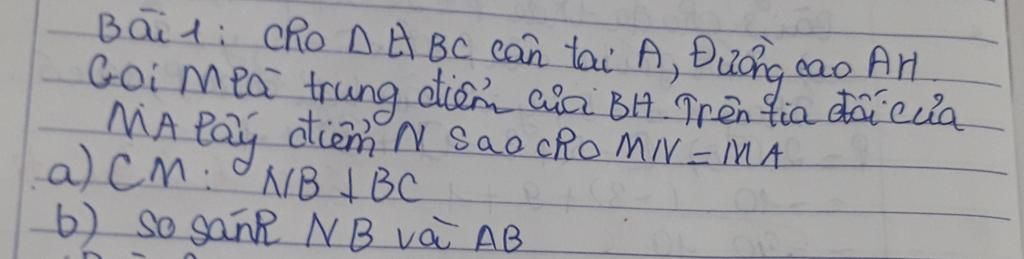 Bài 1: cho Δ ABC cân tại A, Đường cao AH.
Gọi M là trung điểm của BH. Trên tia đối của
MA lấy điểm N sao cho MN = MA
a) CM: NB ⊥ BC
b) so sánh NB và AB